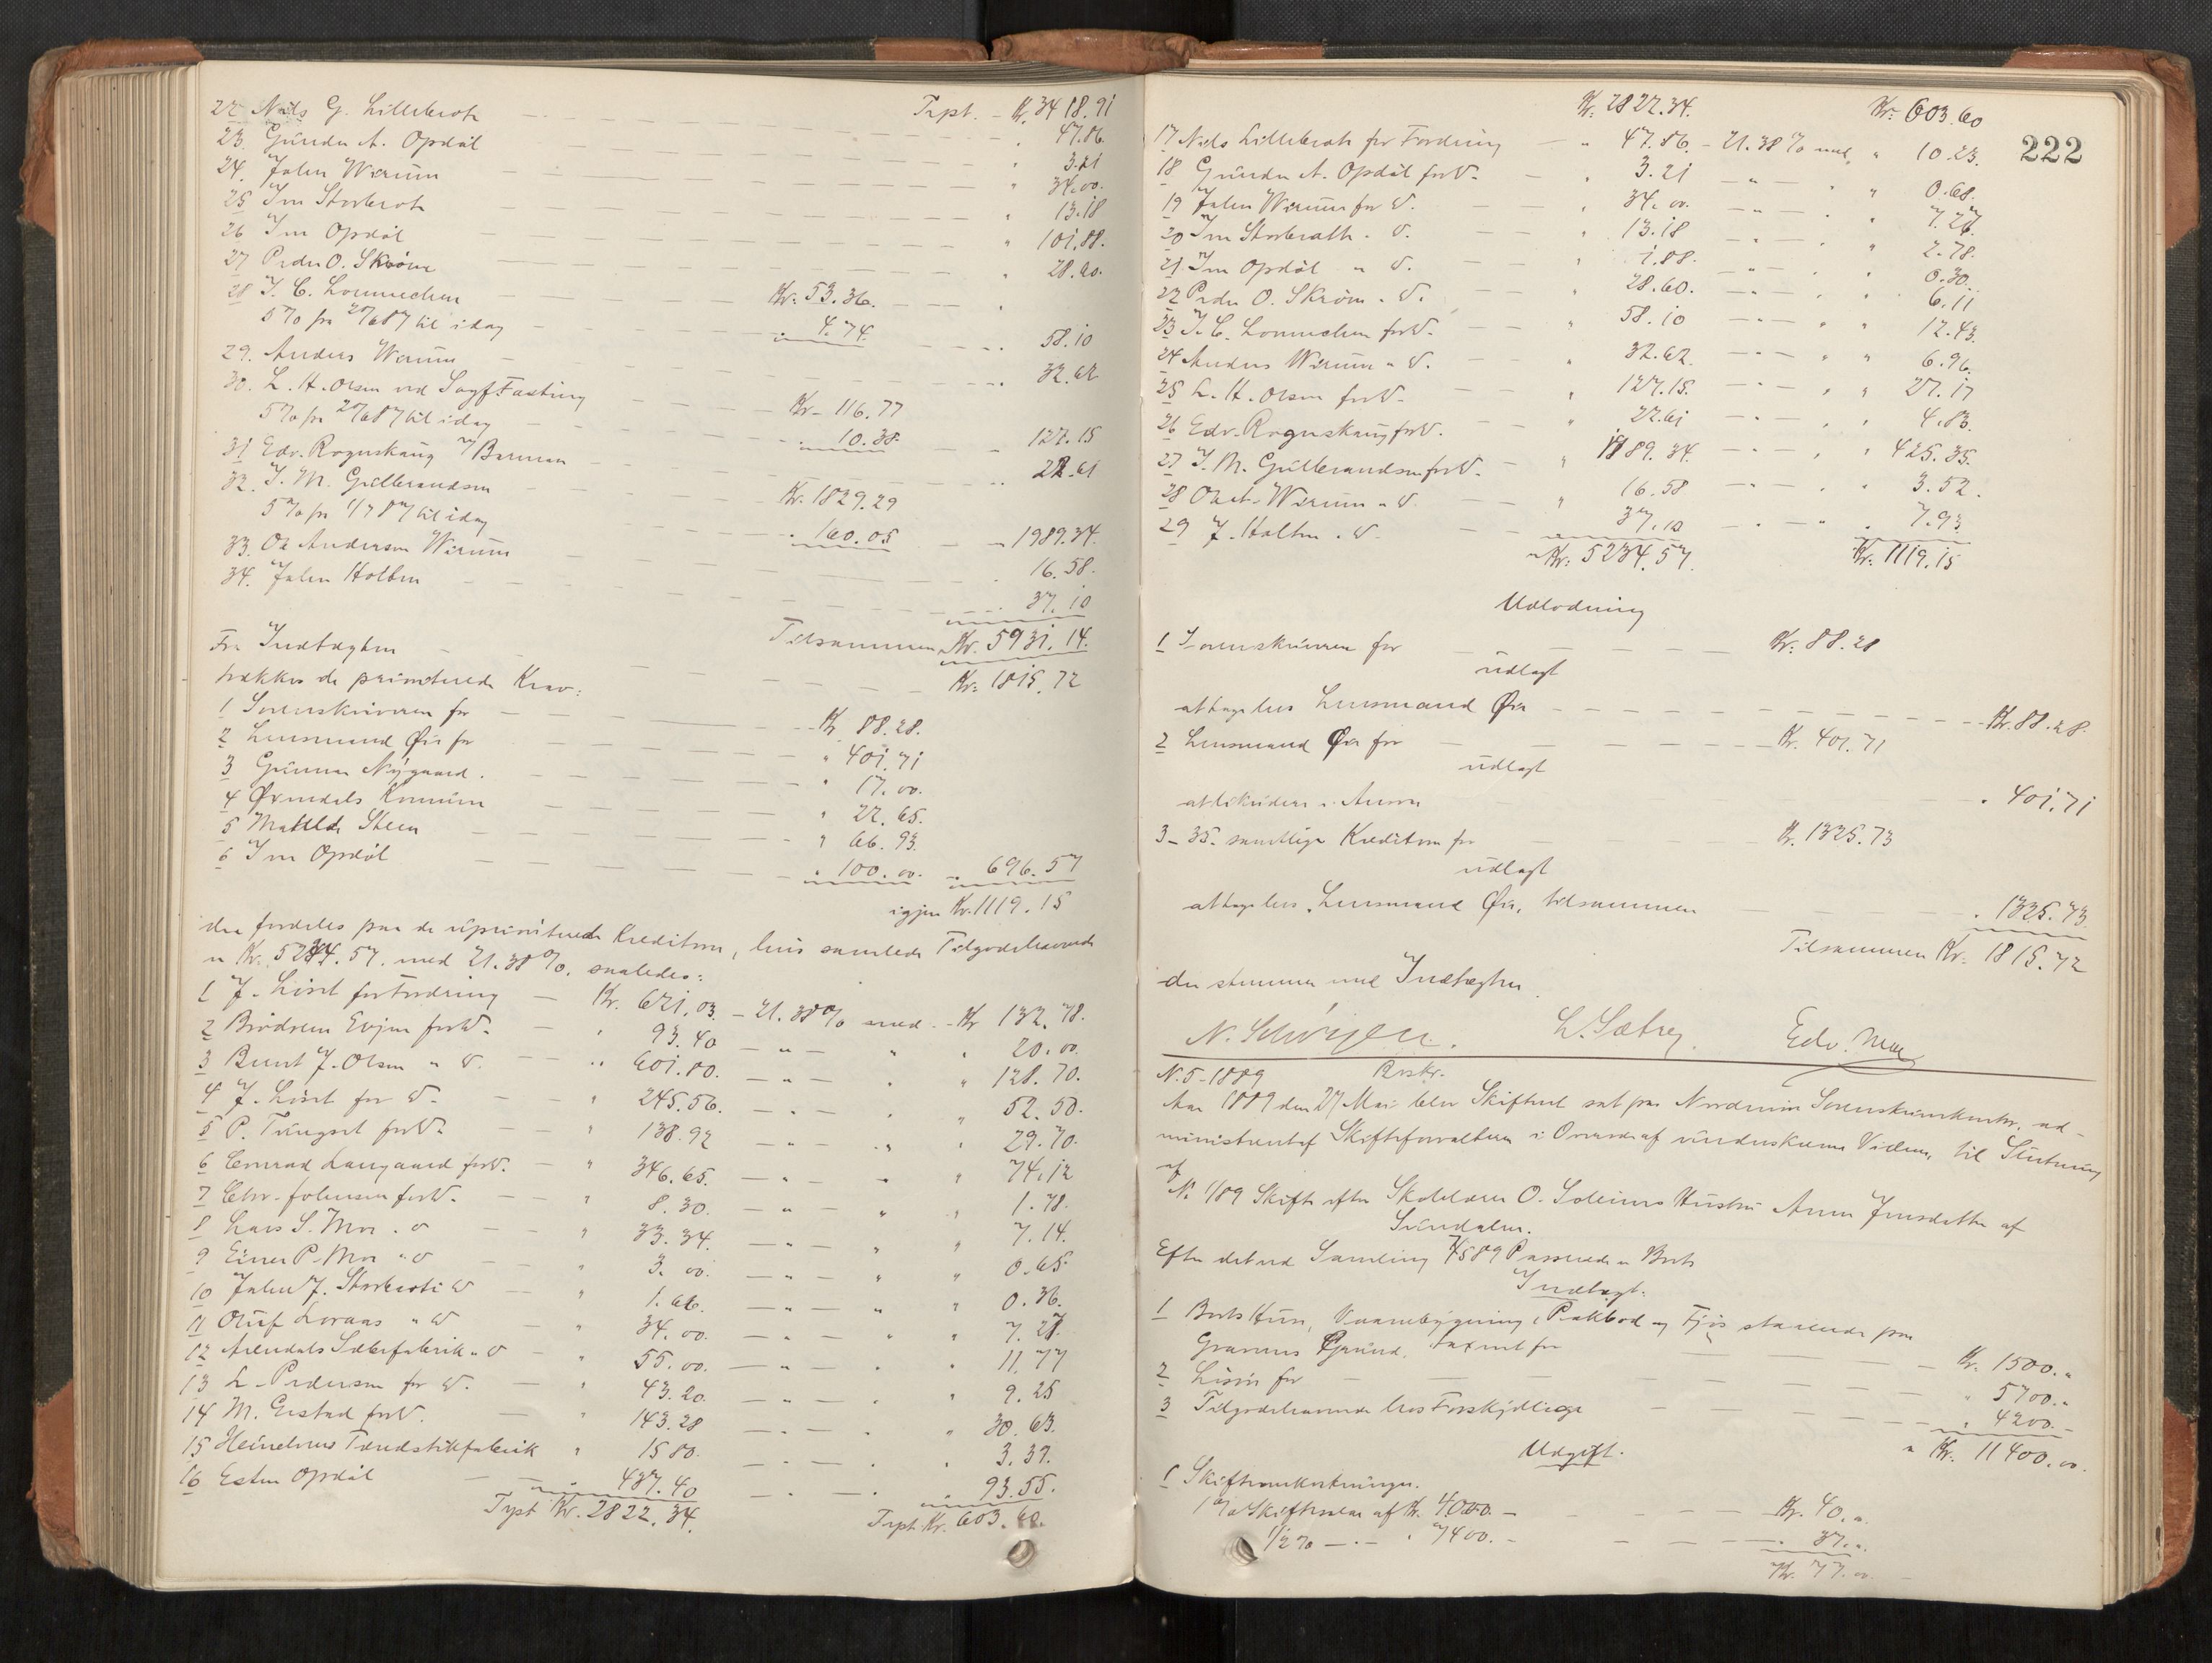 Trpt. - Kr. 3418.91
22 Nils G. Lillebroth — " 47.86.
23. Gunder A. Opdöl — " 3.21
24. Johen Wierum — " 34.00.
25 Iver Storbroth — " 13.18
26 Iver Opdöl — " 101.88.
27 Peder O. Skröm — " 28.60.
28 I. C. Lonnechen — Kr. 53.36.
5% fra 20/6 87 til idag — " 4.74. — 58.10
29. Anders Wierum — 32.62
30. L. H. Olsen ved Sagf. Fasting — Kr. 116.77
5% fra 20/6 87 til idag — " 10.38. — 127.15
31 Edv. Rognskaug — 22.61
32. I. M. Gulbrandsen — Kr. 1829.29
5% fra 1/7 87 til idag — " 160.05 — " 1989.34.
33. Ole Andersen Wierum — 16.58.
34. Johen Holten — 37.10
Tilsammen Kr. 5931.14.
Fra Indtægten — Kr. 1815.72
trækkes de prioriterede Krav:
1 Sorenskriveren for — Kr. 88.28.
2 Lensmand Øie for — " 401.71
3 Gunnar Nygaard. — " 17.00.
4 Øxendals Kommune — " 22.65.
5 Mathilde Steen — " 66.93.
6 Iver Opdöl — " 100.00. — " 696.57
igjen Kr. 1119.15
der fordeles paa de uprioriterede Kreditorer, hvis samlede Tilgodehavende
er Kr. 5234.57. med 21.38%. saaledes:
1 J. Liset for Fordring — Kr. 621.03. — 21.38% med — Kr 132.78.
2 Brödrene Evjen for D. — " 93.40 — " — " 20.00.
3 Bernt J. Olsen " D. — " 601.80. — " — " 128.70.
4 J. Liset for D. — " 245.56. — " — " 52.50.
5 P. Tangset for D. — " 138.92 — " — " 29.70.
6 Conrad Langaard for D. — " 346.65. — " — " 74.12
7 Chr. Johnsen for D. — " 8.30. — " — " 1.78.
8 Lars S. Moe " D — " 33.34. — " — " 7.14.
9 Einer P. Moe " D — " 3.00. — " — " 0.65.
10 Johen J. Storbroth " D — " 1.66. — " — " 0.36.
11 Oluf Loraas " D — " 34.00. — " — " 7.27.
12 Arendals — " D — " 55.00. — " — " 11.77
13 L. Pedersen for D. — " 43.20. — " — " 9.25
14 M. Gustad for D. — " 143.28 — " — " 30.63.
15 Tændstikfabrik " 15 80. — " — " 3.37.
16 Esten Opdöl — 437.40 — " — " 93.55.
Trpt Kr. 2822.34. Trpt. Kr. 603.60.
222
Kr. 2822.34. Kr. 603.60
17 Nils Lillebroth for Fordring — " 47.86. — 21.38% med " 10.23.
18 Gunder A. Opdöl for D. — " 3.21 — " — " 0.68.
19 Johen Wierum for D. — " 34.00. — " — " 7.27.
20 Iver Storbroth " D. — " 13.18 — " — " 2.78.
21 Iver Opdöl " D. — " 1.88. — " — " 0.30.
22 Peder O. Skröm " D. — " 28.60. — " — " 6.11
23 I. C. Lonnechen for D. — " 58.10 — " — " 12.43.
24 Anders Wierum " D. — " 32.62. — " — " 6.96.
25 L. H. Olsen for D. — " 127.15. — " — " 27.17
26 Edv. Rognskaug for D. — " 22.61 — " — " 4.83.
27 I. M. Gulbrandsen for D. — " 1989.34. — " — " 425.35.
28 Ole A. Wierum " D — " 16.58 — " — " 3.52.
29 J. Holten " D — " 37.10 — " — " 7.93
Kr. 5234.57. Kr. 1119.15
Udlodning
1 Sorenskriveren for — Kr. 88.28
udlagt
at tage hos Lensmand Øie — Kr. 88.28.
2 Lensmand Øie for — Kr. 401.71
udlagt
at likvidere i Ansvar — " 401.71
3-35. samtlige Kreditorer for — Kr. 1325.73
udlagt
at tage hos Lensmand Øie, tilsammen — " 1325.73
Tilsammen Kr. 1815.72
der stemmer med Indtægten.
N. L. Sætrey. Edv. Moe
N. 5-1889 Beskr.
Aar 1889 den 27 Mai blev Skifteret sat paa Nordmøre Sorenskriverkontor, ad-
ministreret af Skifteforvalteren i Overvær af underskrevne Vidner, til Slutning
af
N. 1/89 Skifte efter Skolelærer O. Soleims Hustru Anne Jensdatter af
Sundalen.
Efter det ved Samling 4/5 89 Passerede er Boets
Indtægt:
1 Boets Huse, Vaanebygning, Pakbod og Fjös staaende paa
Grund, taxeret for — Kr. 1500."
2 Lösøre for — " 5700."
3 Tilgodehavende hos Forskjellige — " 4200.
Kr. 11400.00.
Udgift.
1 Skifteomkostninger.
1% Skiftesalær af Kr. 4000. — Kr. 40."
1/2% — " — " 7400. — " 37."
Kr. 77.00